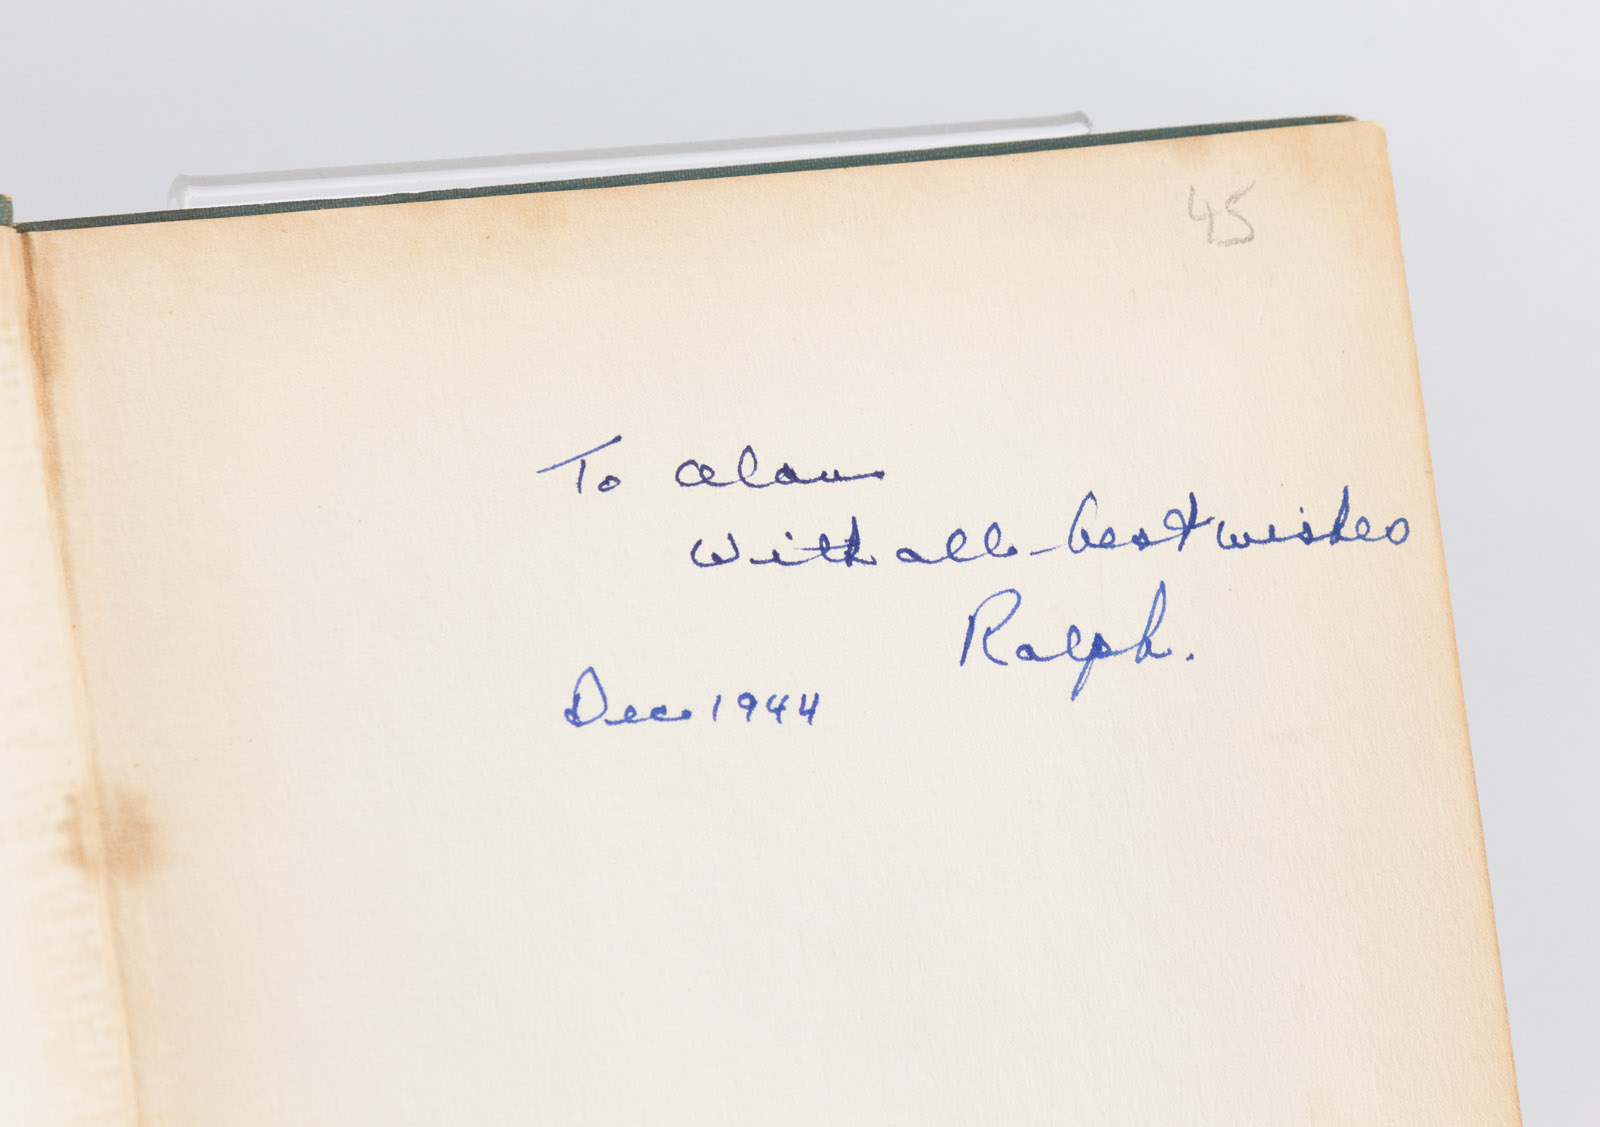 45
To Alan
With all best wishes
Ralph.
Dec 1944